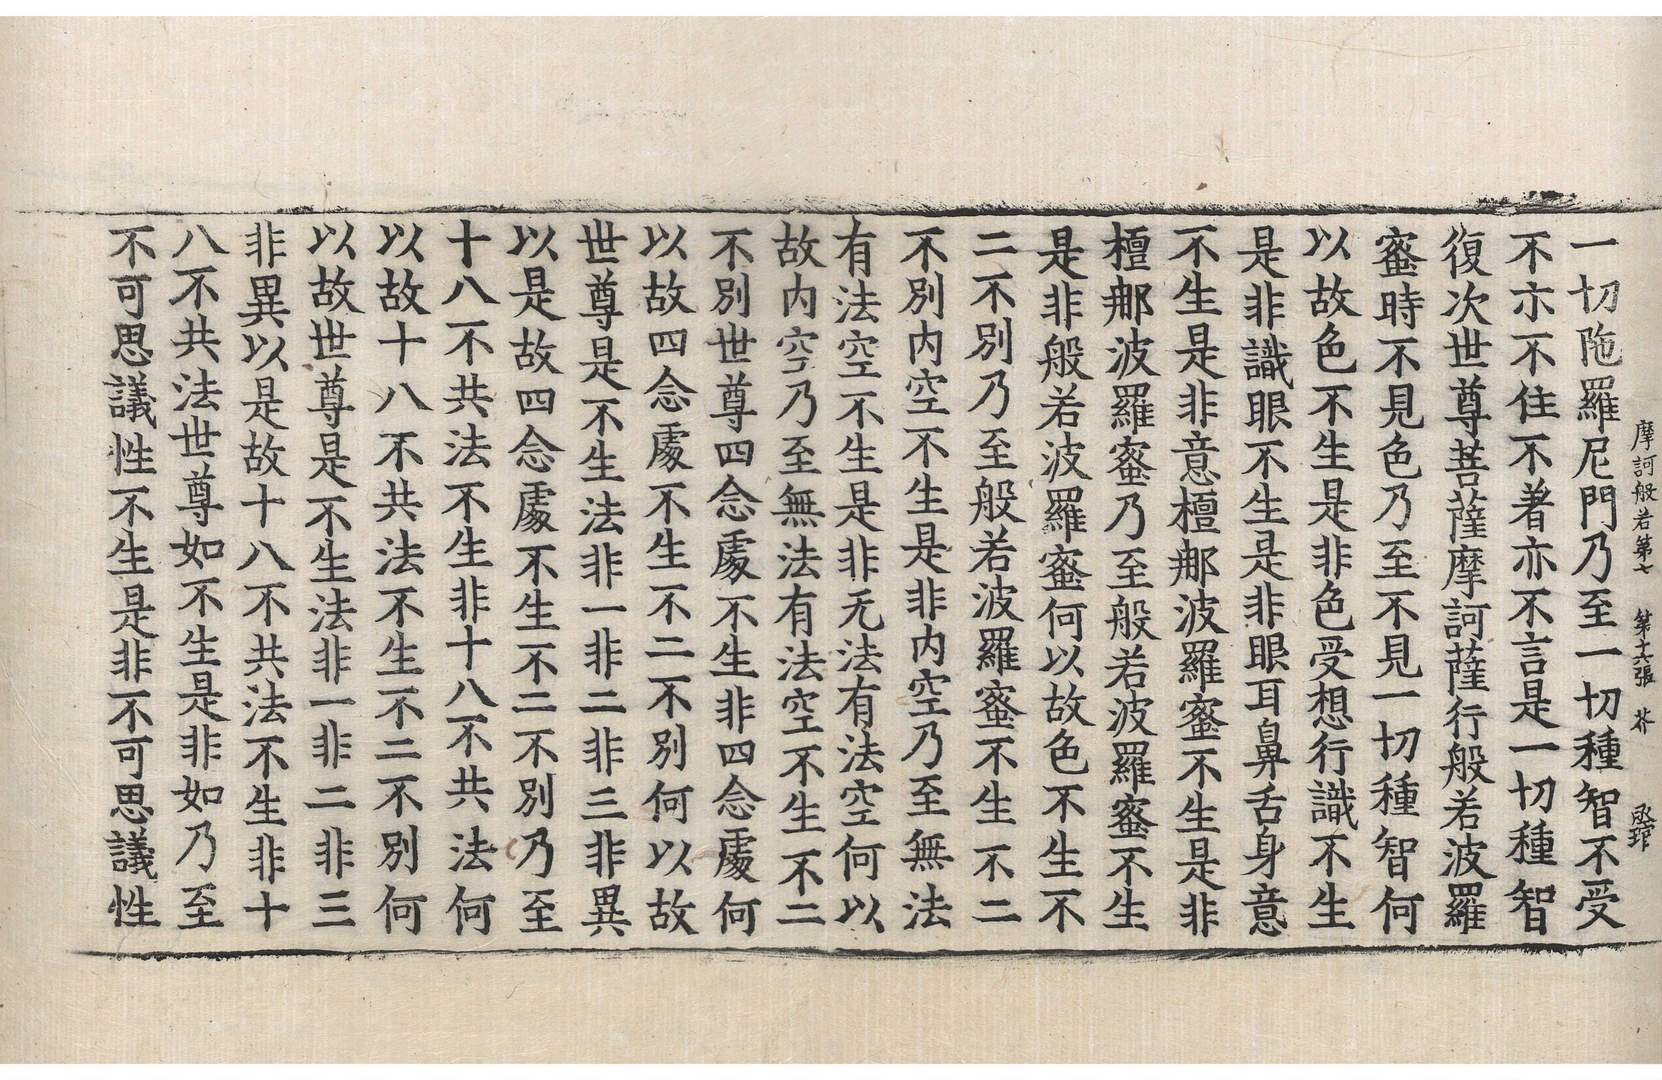 摩訶般若第七　第十六張　芥
一切陁羅尼門乃至一切種智不受
不示不住不著亦不言是一切種智
復次世尊菩薩摩訶薩行般若波羅
蜜時不見色乃至不見一切種智何
以故色不生是非色受想行識不生
是非識眼不生是非眼耳鼻舌身意
不生是非意檀那波羅蜜不生是非
檀那波羅蜜乃至般若波羅蜜不生
是非般若波羅蜜何以故色不生不
二不別乃至般若波羅蜜不生不二
不別內空不生是非內空乃至無法
有法空不生是非无法有法空何以
故內空乃至無法有法空不生不二
不別世尊四念處不生非四念處何
以故四念處不生不二不別何以故
世尊是不生法非一非二非三非異
以是故四念處不生不二不別乃至
十八不共法不生非十八不共法何
以故十八不共法不生不二不別何
以故世尊是不生法非一非二非三
非異以是故十八不共法不生非十
八不共法世尊如不生是非如乃至
不可思議性不生是非不可思議性